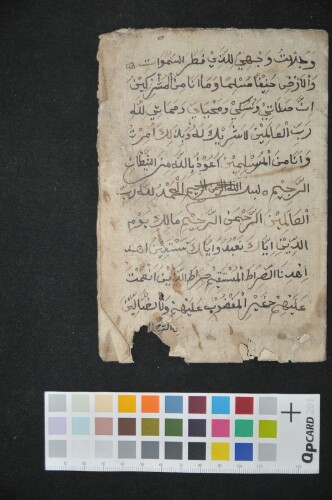 وجهت وجهي للذي فطر السموات
والأرض حنيفا مسلما وما أنا من المشركين
ان صلاتي ونسكي ومحياي ومماتي لله
رب العالمين لا شريك له وبذلك امرت
وانا من المسلمين اعوذ بالله من الشيطان
الرجيم بسم الله الرحمن الرحيم الحمد لله رب
العالمين الرحمن الرحيم مالك يوم
الدين اياك نعبد واياك نستعين اهد
اهدنا الصراط المستقيم صراط الذين انعمت
عليهم غير المغضوب عليهم ولا الضالين
QPCARD